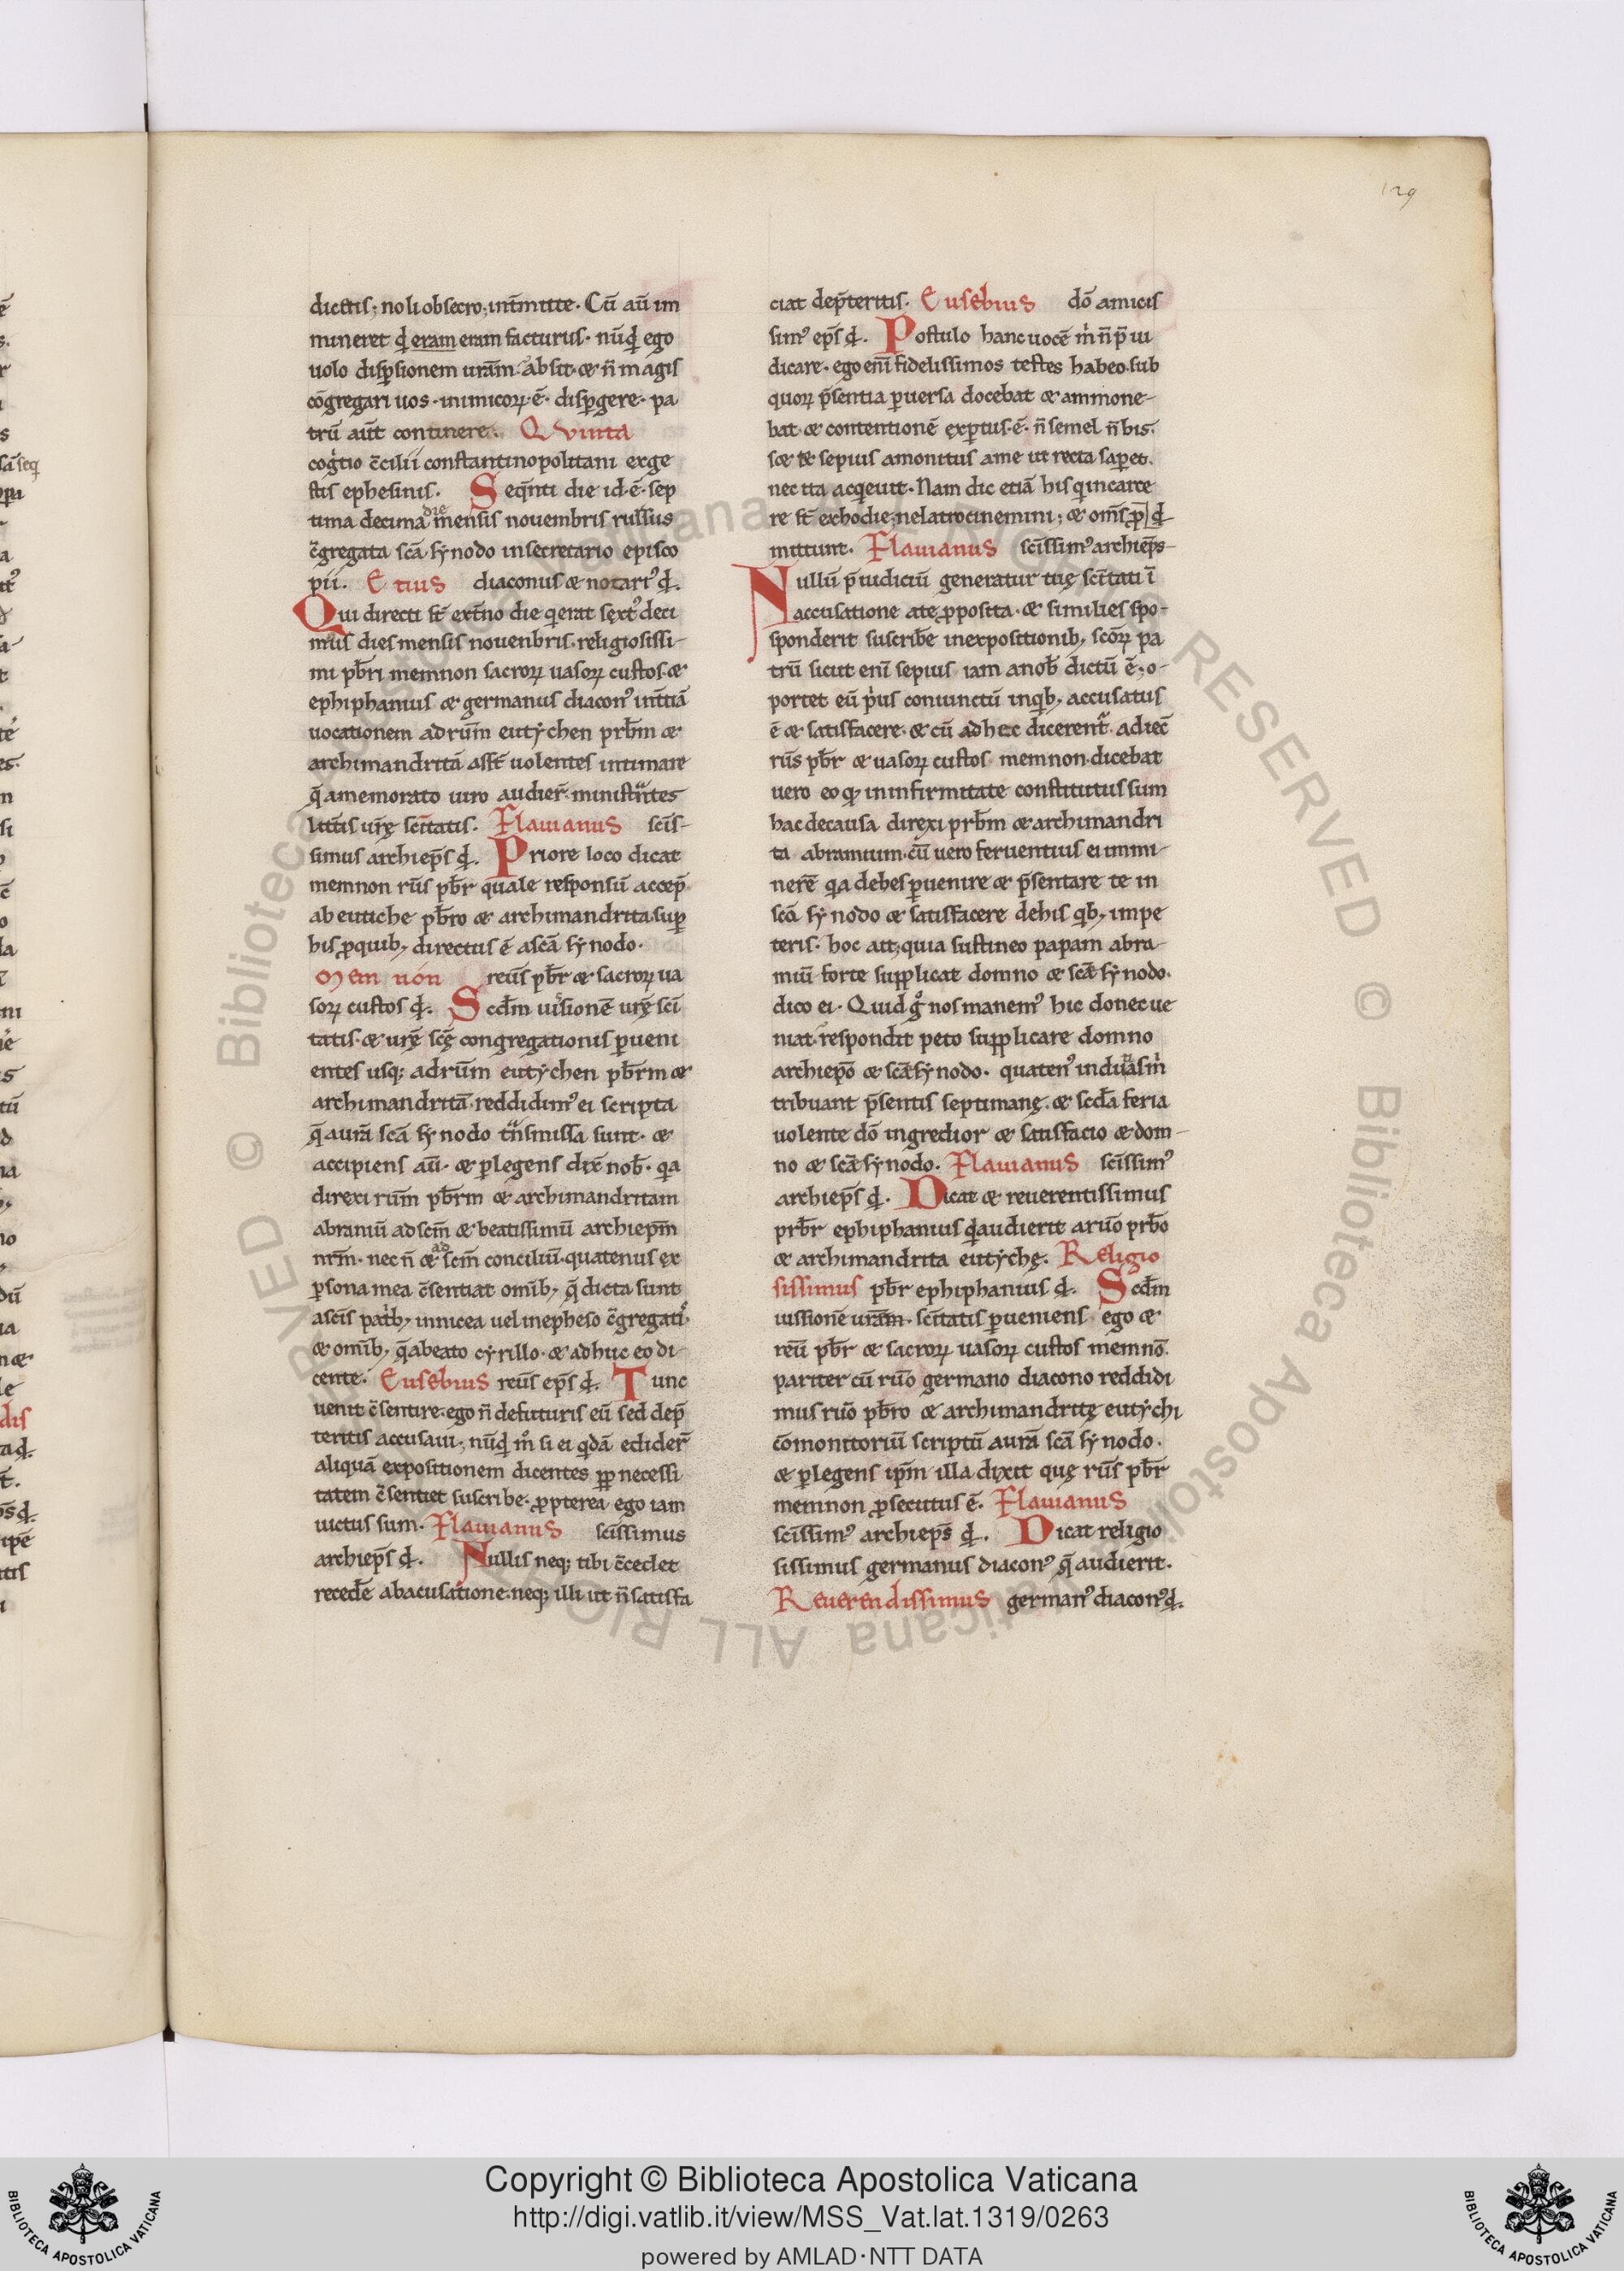 129
dictis; noli obsecro; int̄mitte. Cū aū im
mineret qd̄ eram eram facturus. nūqd̄ ego
uolo disp̱sionem urām. Absit. & n̄ magis
cōgregari uos. inimicoꝝ ē. disp̱gere. pa
trū aūt continere. Quinta
cogͥtio c̄cilii constantinopolitani ex ge
stis ephesinis. Seq̄nti die id.ē. sep
tima decima die mensis nouembris russus
c̄gregata scā sẏnodo in secretario episco
pii. Etius diaconus & notariꝰ d̄.
Qui directi st̄ ext̄no die q̇ erat sextꝰ deci
mus dies mensis nouenbris. religiosissi-
mi pbr̄i memnon sacroꝝ uasoꝝ custos. &
ephiphanius & germanus diaconꝰ int̄tiā
uocationem ad rūm eutẏchen prbm̄ &
archimandritā assт̄ uolentes intimare
q̄ a memorato uiro audier̄. ministrātes
litt̄is urę̄ scītatis. Flauianus scīs-
simus archiep̄s d̄. Priore loco dicat
memnon rūs pbr̄ quale responsū accep̄.
ab eutiche pbr̄o & archimandrita sup̱
his p̱ quibꝫ directus ē a scā sẏnodo.
Memnon reūs pbr̄ & sacroꝝ ua
soꝝ custos d̄. Scd̄m uisionē urę̄ scī
tatis. & urę̄ scę̄ congregationis p̱ueni
entes usqꝫ ad rūm eutẏchen pbr̄m &
archimandritā. reddidimꝰ ei scripta
q̄ a urā scā sẏnodo tͣnsmissa sunt. &
accipiens aū. & p̱legens dix̄ nob̄. qa
direxi rūm pbr̄m & archimandritam
abramiū ad scm̄ & beatissimū archiepm̄
nrm̄. nec n̄ & ad scm̄ conciliū. quatenus ex
p̱sona mea c̄sentiat omībꝫ q̄ dicta sunt
a scīs patribꝫ in nicea uel in epheso c̄gregatiͥ.
& omībꝫ q̄ a beato cẏrillo. & adhuc eo di-
cente. Eusebius reūs ep̄s d̄. Tunc
uenit c̄sentire. ego n̄ de futuris eū sed de p̄
teritis accusaui; nūqd̄ m̊ si ei qdā edider̄
aliquā expositionem dicentes ꝓp necessi
tatem c̄sentiet suscribe. ꝓpterea ego iam
uictus sum. Flauianus scīssimus
archiep̄s d̄. Nullis neqꝫ tibi c̄cedet
recedē ab acusatione. neqꝫ illi ut n̄ satisfa
ciat de p̄teritis. Eusebius dō amicis
simꝰ ep̄s d̄. Postulo hanc uocē m̍ n̄ p̄iu
dicare. ego enī fidelissimos testes habeo. sub
quoꝝ p̄sentia p̱uersa docebat & ammone-
bat & contentionē exp̱tus.ē. n̄ semel n̄ bis.
s& sepius amonitus a me ut recta sap̱et.
nec ita acq̇euit. Nam dic etiā his q̇ in carce
re st̄ ex hodie; ne latrocinemini; & om̄s ꝓ d̄
mittunt. Flauianus scīssimꝰ archiep̄s-
Nullū p̄iudiciū generatur tuę scītati ī
accusatione a te ꝓposita. & si milies spo-
sponderit suscrib̄e in expositionibꝫ scōꝝ pa
trū sicut enī sepius iam a nob̄ dictū ē. o-
portet eū p̍us coniunctū in qͥbꝫ accusatus
ē & satisfacere. & cū ad hec dicerent̄. adiec̄
rūs pbr̄ & uasoꝝ custos memnon. dicebat
uero eo qꝫ in infirmitate constitutus sum
hac de causa direxi prbm̄ & archimandri
ta abramium. cū uero feruentius ei immi-
nerē qa debes p̱uenire & p̄sentare te in
scā sẏnodo & satisfacere de his qͥbꝫ impe
teris. hoc ait; quia sustineo papam abra-
miū forte supplicat domno & scē sẏnodo.
dico ei. Quid gͦ nos manemꝰ hic donec ue
niat. respondit peto supplicare domno
archiepō & scē sẏnodo. quatenꝰ induas m̍
tribuant p̄sentis septimanę. & scd̄a feria
uolente dō ingredior & satisfacio & dom-
no & scē sẏnodo. Flauianus scīssimꝰ
archiep̄s d̄. Dicat & reuerentissimus
prbr̄ ephiphanius qd̄ audierit a ruō prbō
& archimandrita eutẏchę. Religio
sissimus pbr̄ ephiphanius d̄. Scd̄m
iussionē urām. scītatis p̱ueniens ego &
reū pbr̄ & sacroꝝ uasoꝝ custos memnō.
pariter cū ruō germano diacono reddidi
mus ruō pbr̄o & archimandritę eutẏchi
cōmonitoriū scriptū a urā scā sẏnodo.
& p̱legens ipm̄ illa dixit quę rūs pbr̄
memnon ꝓsecutus ē. Flauianus
scīssimꝰ archiep̄s d̄. Dicat religio
sissimus germanus diaconꝰ q̄ audierit.
Reuerendissimus germanꝰ diaconꝰ d̄.
Copyright © Biblioteca Apostolica Vaticana
http://digi.vatlib.it/view/MSS_Vat.lat.1319/0263
powered by AMLAD·NTT DATA